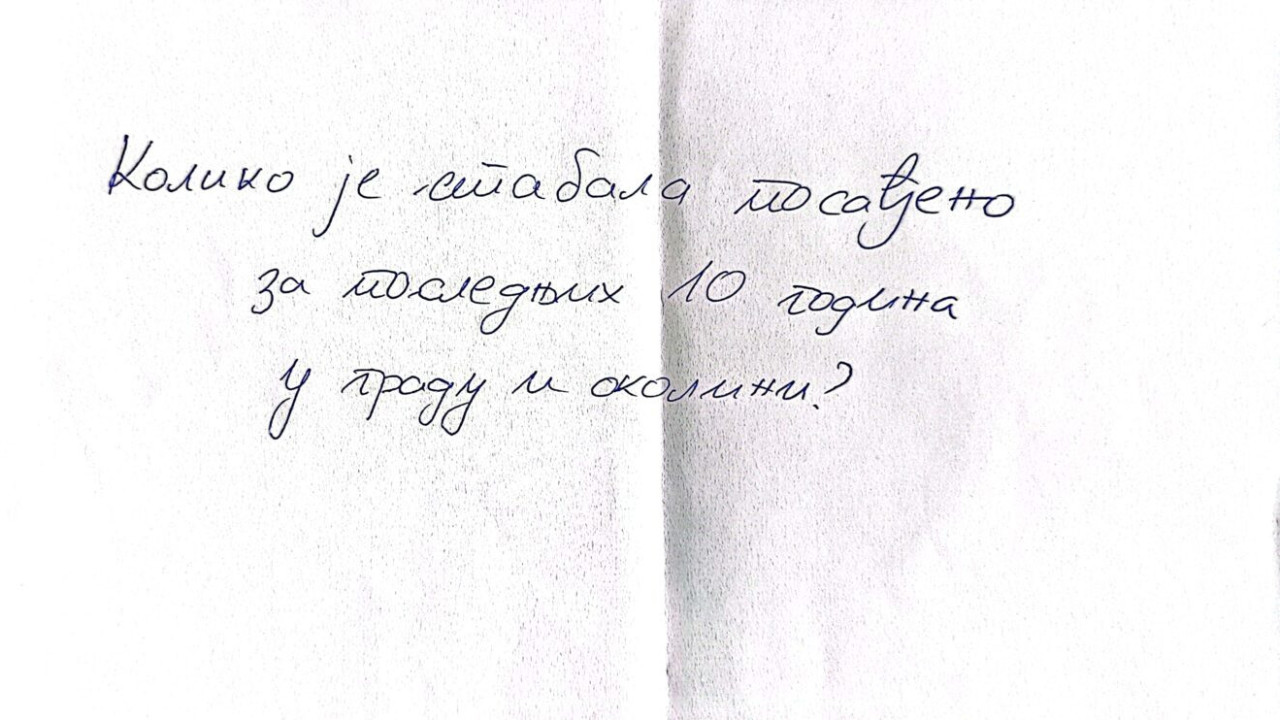 Колико је стабала посађено
за последњих 10 година
у граду и околини?